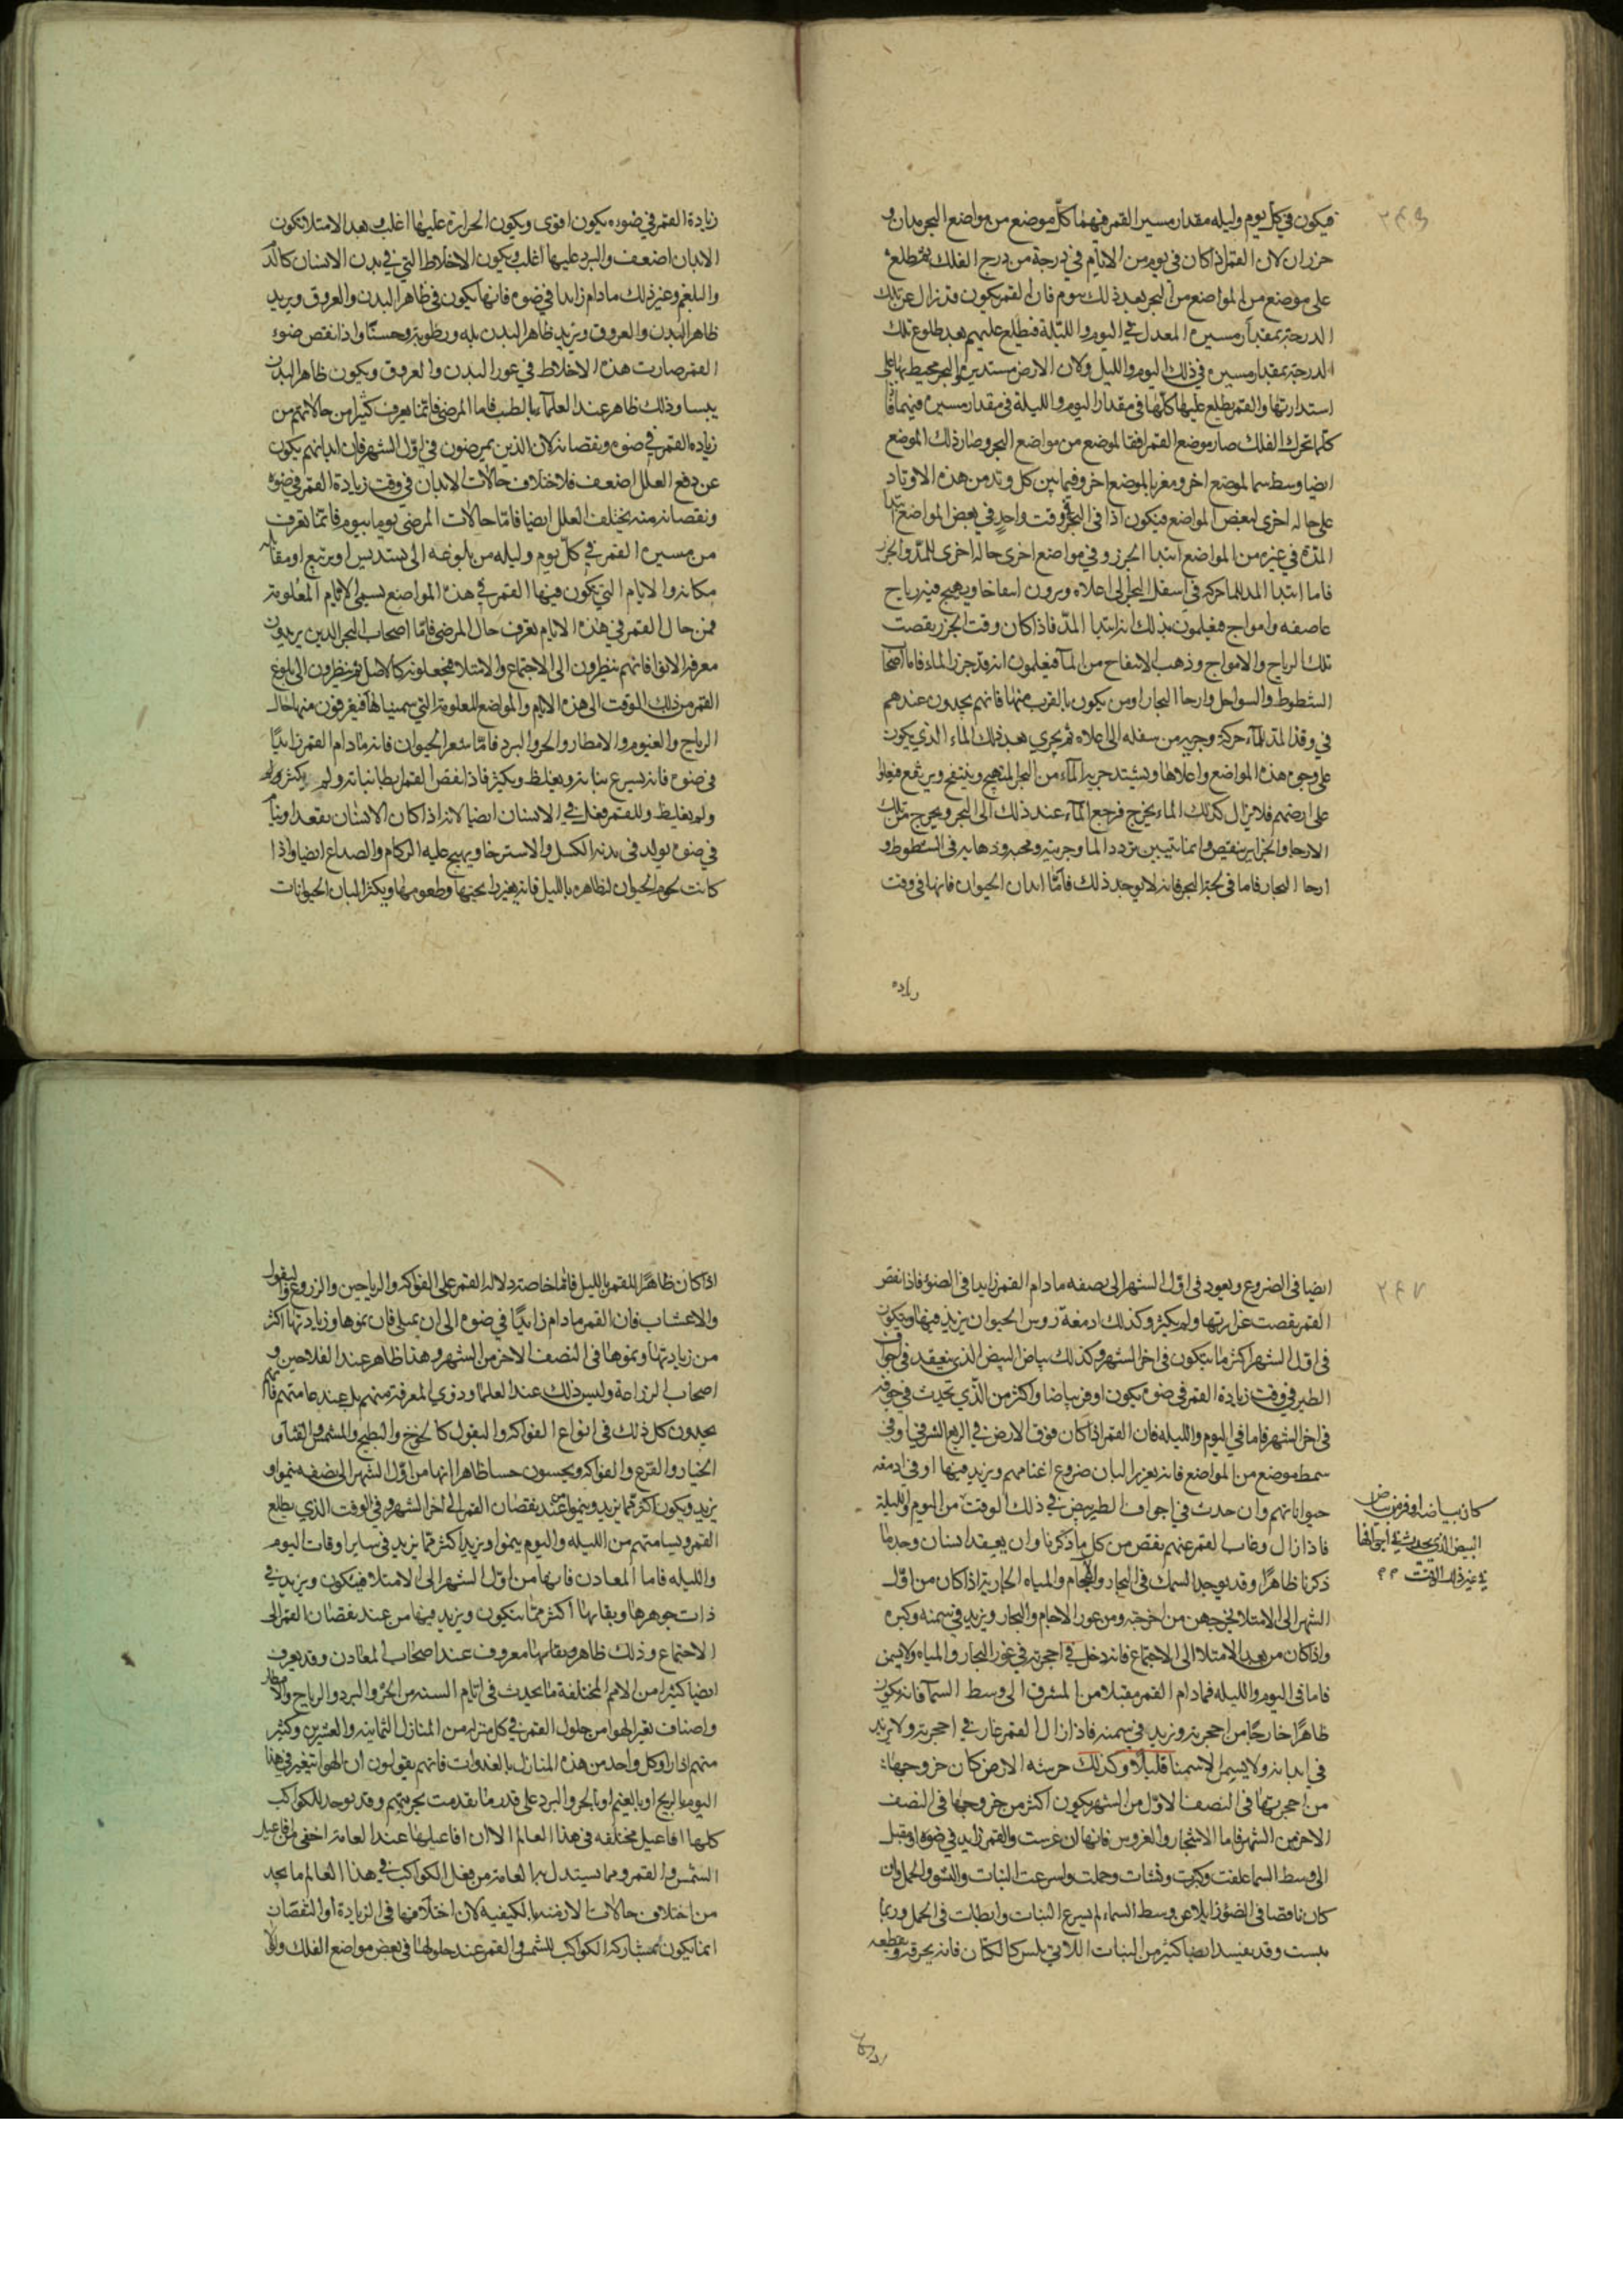 فيكون في كل يوم وليله مقدار مسير القمر فيهما كل موضع من مواضع البحر مدان و
جزران لان القمر اذا كان في يوم من الايام في درجة من درج الفلك ثم طلع
على موضع من المواضع من البحر بعد ذلك بيوم فان القمر يكون قد زال عن تلك
الدرجة بمقدار مسيره المعدل في اليوم والليلة فيطلع عليهم بعد طلوع تلك
الدرجة بمقدار مسيره في ذلك اليوم والليل ولان الارض مستديرة والبحر محيط بها على
استدارتها والقمر يطلع عليها كلها في مقدار اليوم والليلة في مقدار مسيره فيهما
كلما تحرك الفلك صار موضع القمر افقا لموضع من مواضع البحر وصار ذلك الموضع
ايضا وسط سما لموضع اخر ومغربا لموضع اخر وفيما بين كل وتد من هذه الاوتاد
على حاله اخرى لبعض المواضع فيكون اذا في البحر في وقت واحد في بعض المواضع ابتدا
المد وفي غيره من المواضع ابتدا الجزر وفي مواضع اخرى حاله اخرى للمد والجزر
فاما ابتدا المد للما حركه في اسفل البحر الى اعلاه ويرون انتفاخا ويهيج فيه رياح
عاصفه وامواج فيعلمون بذلك انه ابتدا المد فاذا كان وقت الجزر نقصت
تلك الرياح والامواج وذهب الانتفاخ من الماء فيعلمون انه قد جزر الماء فاما اصحاب
الشطوط والسواحل وارحا البحار او من يكون بالقرب منها فانهم يجدون عندهم
في وقت المد للماء حركة وجريه من سفله الى اعلاه ثم يجري بعد ذلك الماء الذي يكون
على وجوه هذه المواضع واعلاها ويشتد جريه الماء من البحر المتهيج وينتفخ ويرتفع فيعلوا
على ارضهم فلا يزال كذلك الماء يخرج فرجع الماء عند ذلك الى البحر ويخرج من تلك
الارحا والجزاير ينقص وانما يتبين تردد الما وجريته ومجيه وذهابه في الشطوط و
ارحا البحار فاما في لجة البحر فانه لا يوجد ذلك فاما ابدان الحيوان فانها في وقت
زياده
زيادة القمر في ضوءه يكون اقوى ويكون الحرارة عليها اغلب وبعد الامتلا تكون
الابدان اضعف والبرد عليها اغلب ويكون الاخلاط التي في بدن الانسان كالدم
والبلغم وغير ذلك ما دام زايدا في ضوءه فانها يكون في ظاهر البدن والعروق ويزيد
ظاهر البدن والعروق ويزيد ظاهر البدن بله ورطوبة وحسنا واذا نقص ضوء
القمر صارت هذه الاخلاط في غور البدن والعروق ويكون ظاهر البدن
يبسا وذلك ظاهر عند العلماء بالطب فاما المرضى فانما يعرف كثير من حالاتهم من
زياده القمر في ضوءه ونقصانه لان الذين يمرضون في اول الشهر فان ابدانهم يكون
عن دفع العلل اضعف فلاختلاف حالات الابدان في وقت زيادة القمر في ضوءه
ونقصانه منه يختلف العلل ايضا فاما حالات المرضى يوما بيوم فانما تعرف
من مسيره القمر في كل يوم وليله من بلوغه الى تسديس او تربيع او مقابله
مكانه والايام التي يكون فيها القمر في هذه المواضع تسمى الايام المعلومة
فمن حال القمر في هذه الايام يعرف حال المرضى فاما اصحاب البحر الذين يريدون
معرفة الانوا فانهم ينظرون الى الاجتماع والامتلا فيجعلونه كالاصل ثم ينظرون الى بلوغ
القمر من ذلك الوقت الى هذه الايام والمواضع المعلومة التي سميناها فيعرفون منها حال
الرياح والغيوم والامطار والحر والبرد فاما شعر الحيوان فانه ما دام القمر زايدا
في ضوءه فانه يسرع نباته ويغلظ ويكثر فاذا نقص القمر ابطا نباته ولم يكثر
ولم يغلظ وللقمر فعل في الانسان ايضا لانه اذا كان الانسان يقعد او ينام
في ضوءه تولد في بدنه الكسل والاسترخا ويهيج عليه الزكام والصداع ايضا واذا
كانت لحوم الحيوان لظاهره بالليل فانه يغير رايحتها وطعومها ويكثر البان الحيوانات
ايضا في الضروع ويعود في اول الشهر الى نصفه ما دام القمر زايدا في الضوء فاذا نقص
القمر نقصت غزارتها ولم يكثر وكذلك ادمغة روس الحيوان يزيد فيها ويتكون
في اول الشهر اكثر مما يتكون في اخر الشهر وكذلك بياض البيض الذي ينعقد في اجواف
الطير في وقت زيادة القمر في ضوءه يكون اوفر بياضا واكثر من الذي يحدث في جوفه
في اخر الشهر فاما في اليوم والليله فان القمر اذا كان فوق الارض في الربع الشرقي او في
سمط موضع من المواضع فانه يغزر البان ضروع اغنامهم ويزيد فيها او في ادمغه
حيواناتهم وان حدث في اجواف الطير بيض في ذلك الوقت من اليوم والليلة
كان بياضه اوفر من بياض
البيض الذي يحدث في اجوافها
في غير ذلك الوقت
فاذا زال وغاب القمر عنهم نقص من كل ما ذكرنا وان يعتقد انسان وجد ما
ذكرنا ظاهرا وقد يوجد السمك في البحار والاجام والمياه الجارية اذا كان من اول
الشهر الى الامتلا يخرجهن من اجحرته ومن غور الاجام والبحار ويزيد في سمنه وكبره
واذا كان من بعد الامتلا الى الاجتماع فانه دخل في اجحرته في غور البحار والمياه ولا يسمن
فاما في اليوم والليله فما دام القمر مقبلا من المشرق الى وسط السماء فانه يكون
ظاهرا خارجا من اجحرته ويزيد في سمنه فاذا زال القمر غار في اجحرته ولا يزيد
في ابدانه ولا يسمن الا سمنا قليلا وكذلك حرشه الارض كان خروجها
من اجحرتها في النصف الاول من الشهر يكون اكثر من خروجها في النصف
الاخر من الشهر فاما الاشجار والغروس فانها ان غرست والقمر زايد في ضوءه او مقبل
الى وسط السما علقت وكبرت ونشات وحملت واسرعت النبات والنشو والحمل وان
كان ناقصا في الضوء زايلا عن وسط السماء لم يسرع النبات وابطات في الحمل وربما
يبست وقد يفسد ايضا كثير من النبات اللاتي يلبس كالكتان فانه يحرقه ويقطعه
اذا كان
اذا كان ظاهرا للقمر بالليل فاما خاصة دلاله القمر على الفواكه والرياحين والزروع والبقول
والاعشاب فان القمر ما دام زايدا في ضوءه الى ان يمتلى فان نموها وزيادتها اكثر
من زيادتها ونموها في النصف الاخر من الشهر وهذا ظاهر عند الفلاحين و
اصحاب الزراعة وليس ذلك عند العلما وذوي المعرفة منهم بل عند عامتهم فانهم
يجدون كل ذلك في انواع الفواكه والبقول كالخوخ والبطيخ والمشمش والقثاء و
الخيار والقرع والفواكه ويحسون حسا ظاهرا انها من اول الشهر الى نصفه ينموا و
يزيد ويكون اكثر مما يزيد وينموا عند نقصان القمر الى اخر الشهر وفي الوقت الذي يطلع
القمر ويسامتهم من الليله واليوم ينموا ويزيد اكثر مما يزيد في ساير اوقات اليوم
والليله فاما المعادن فانها من اول الشهر الى الامتلا فيتكون ويزيد في
ذات جوهرها وبقائها اكثر مما يتكون ويزيد فيها من عند نقصان القمر الى
الاجتماع وذلك ظاهر معروف عند اصحاب المعادن وقد يعرف
ايضا كثيرا من الامم المختلفة ما يحدث في ايام السنه من الحر والبرد والرياح والامطار
واصناف تغير الهوا من حلول القمر في كل منزلة من المنازل الثمانيه والعشرين وكثير
منهم اذا راوا كل واحد من هذه المنازل بالغدوات فانهم يقولون ان الهوا يتغير في هذا
اليوم بالريح او بالغيم او بالحر والبرد على قدر ما تقدمت تجربتهم وقد يوجد للكواكب
كلها افاعيل مختلفه في هذا العالم الا ان افاعيلها عند العامة اخفى من افاعيل
الشمس والقمر ومما يستدل به العامة من فعل الكواكب في هذا العالم ما يجد
من اختلاف حالات الازمنه بالكيفية لان اختلافها في الزيادة او النقصان
انما يكون بمشاركه الكواكب للشمس والقمر عند حلولها في بعض مواضع الفلك